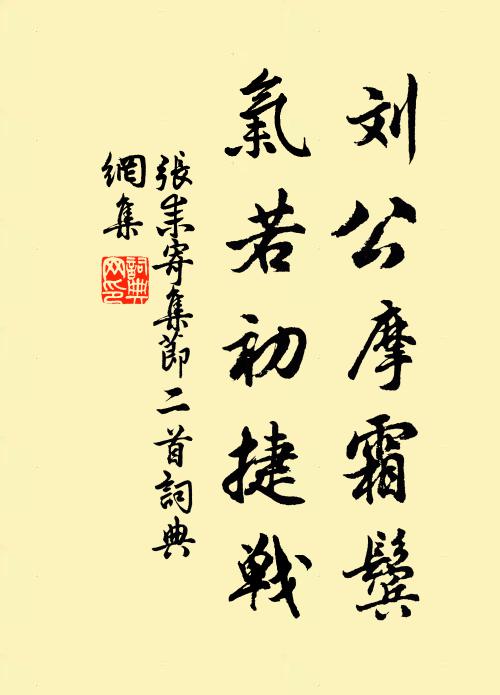 刘公摩霜鬓
氣若初捷戦
張耒寄集節二首詞典
網集
詞典網印